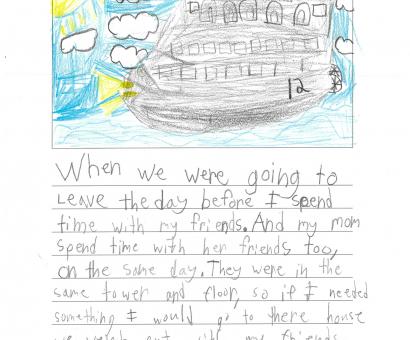 12
When we were going to
Leave the day before I spend
time with my friends. And my mom
spend time with her friends too,
on the same day. They were in the
same tower and floor, so if I needed
something I would go to there house
my friends